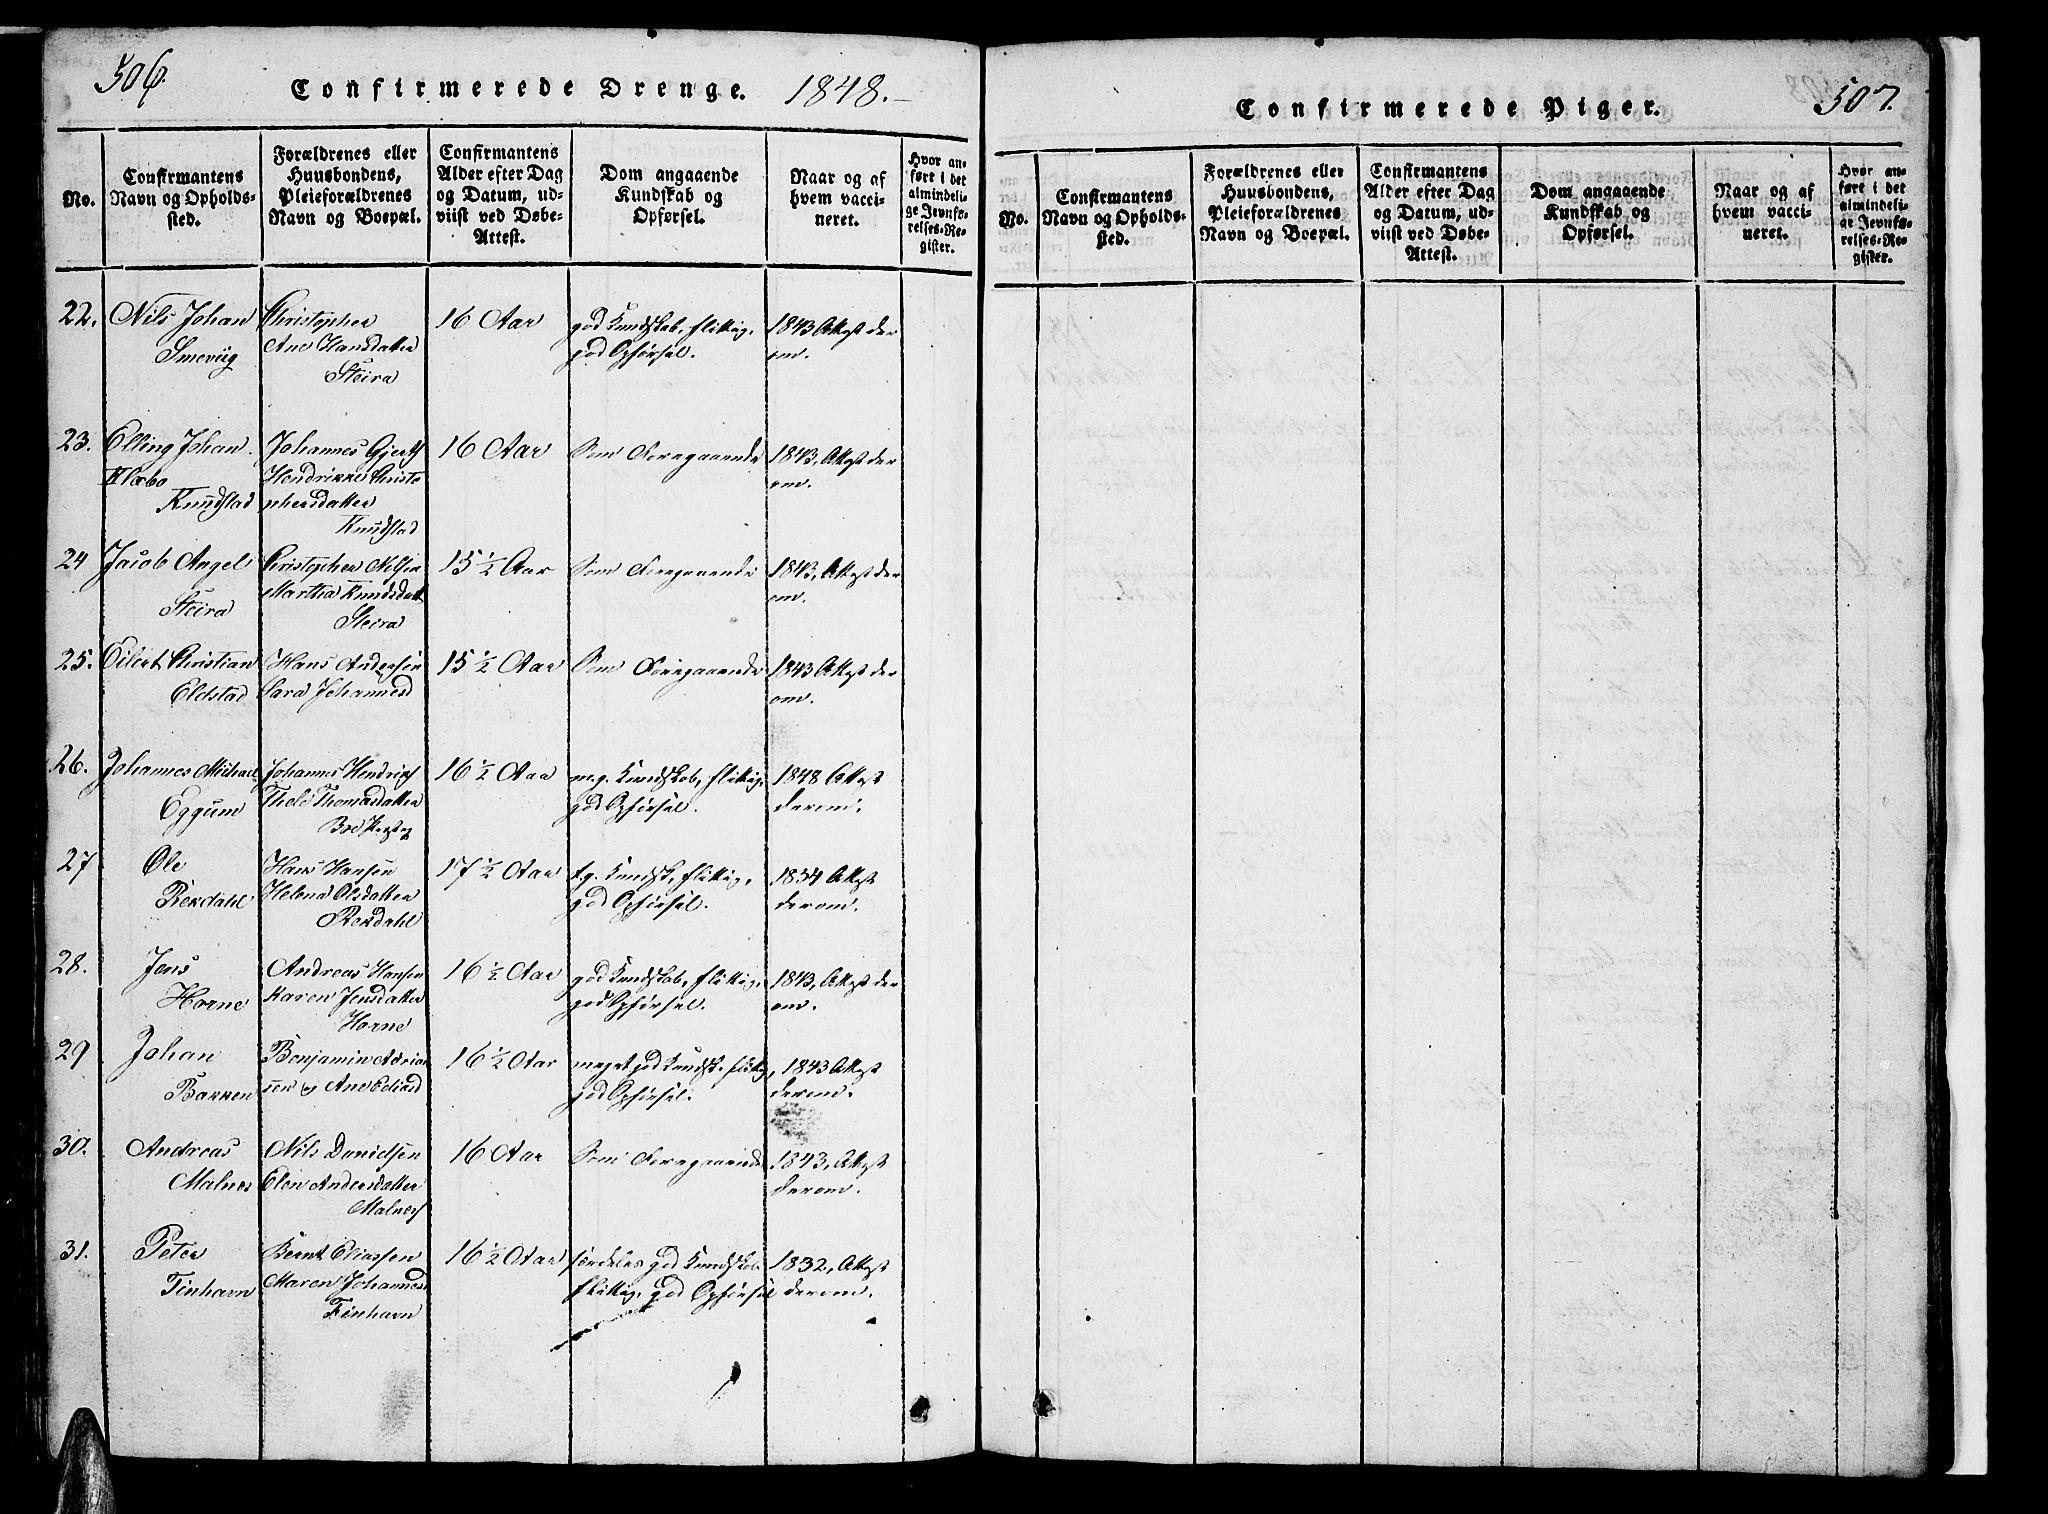 506.
Confirmerede Drenge. 1848.
No.
Confirmantens
Navn og Opholds-
sted.
Forældrenes eller
Huusbondens,
Pleieforældrenes
Navn og Boepæl.
Confirmantens
Alder efter Dag
og Datum, ud-
viist ved Døbe-
Attest.
Dom angaaende
Kundskab og
Opførsel.
Naar og af
hvem vacci-
neret.
Hvor an-
ført i det
almindeli-
ge Jevnfø-
relses-Re-
gister.
22.
Nils Johan
Smevüg
Christopher
Ane Hansdatter
Steira
16 Aar
god Kundskab, flittig,
god Opførsel.
1843 Attest der
om.
23.
Elling Johan
Klæbo
Knudstad
Johannes Gjert
Hendrikke Christo
phersdatter
Knudstad
16 Aar
Som Foregaaende
1843, Attest der
om.
24
Jacob Angel
Steira
Christopher Nilsen
Martha Knudsdatt
Steira
15 1/2 Aar
Som Foregaaende
1843, Attest der
om.
25.
Eilert Christian
Eldstad
Hans Andersen
Sara Johannesd
15 1/2 Aar
Som Foregaaende
1843 Attest der
om.
26.
Johannes Michael
Eggum
Johannes Hendrichs
Thomasdatter
16 1/2 Aar
m.g. Kundskab, flittig,
god Opførsel.
1848 Attest
derom.
27
Ole
Rekdahl
Hans Hansen
Helena Olsdatter
Rekdahl
17 1/2 Aar
tg. Kundsk, flittig,
god Opførsel.
1834 Attest
derom.
28.
Jens
Horne
Andreas Hansen
Karen Jensdatter
Horne
16 1/2 Aar
god Kundskab, flittig,
god Opførsel.
1843, Attest der
om.
29
Johan
Bakken
Benjamin Adrian
sen og Ane Eliasd
16 1/2 Aar
meget god Kundsk. flittig
god Opførsel.
1843 Attest
derom.
30.
Andreas
Malnes
Nils Danielsen
Elen Andersdatter
Malnes
16 Aar
Som Foregaaende
1843, Attest
derom.
31.
Peter
Finhavn
Bernt Eliassen
Maren Johannesd
Finhavn
16 1/2 Aar
særdeles god Kundskab
flittig, god Opførsel
1832, Attest
derom.
507.
Confirmerede Piger.
No.
Confirmantens
Navn og Opholds-
sted.
Forældrenes eller
Huusbondens,
Pleieforældrenes
Navn og Boepæl.
Confirmantens
Alder efter Dag
og Datum, ud-
viist ved Døbe-
Attest.
Dom angaaende
Kundskab og
Opførsel.
Naar og af
hvem vacci-
neret.
Hvor an-
ført i det
almindeli-
ge Jevnfø-
relses-Re-
gister.